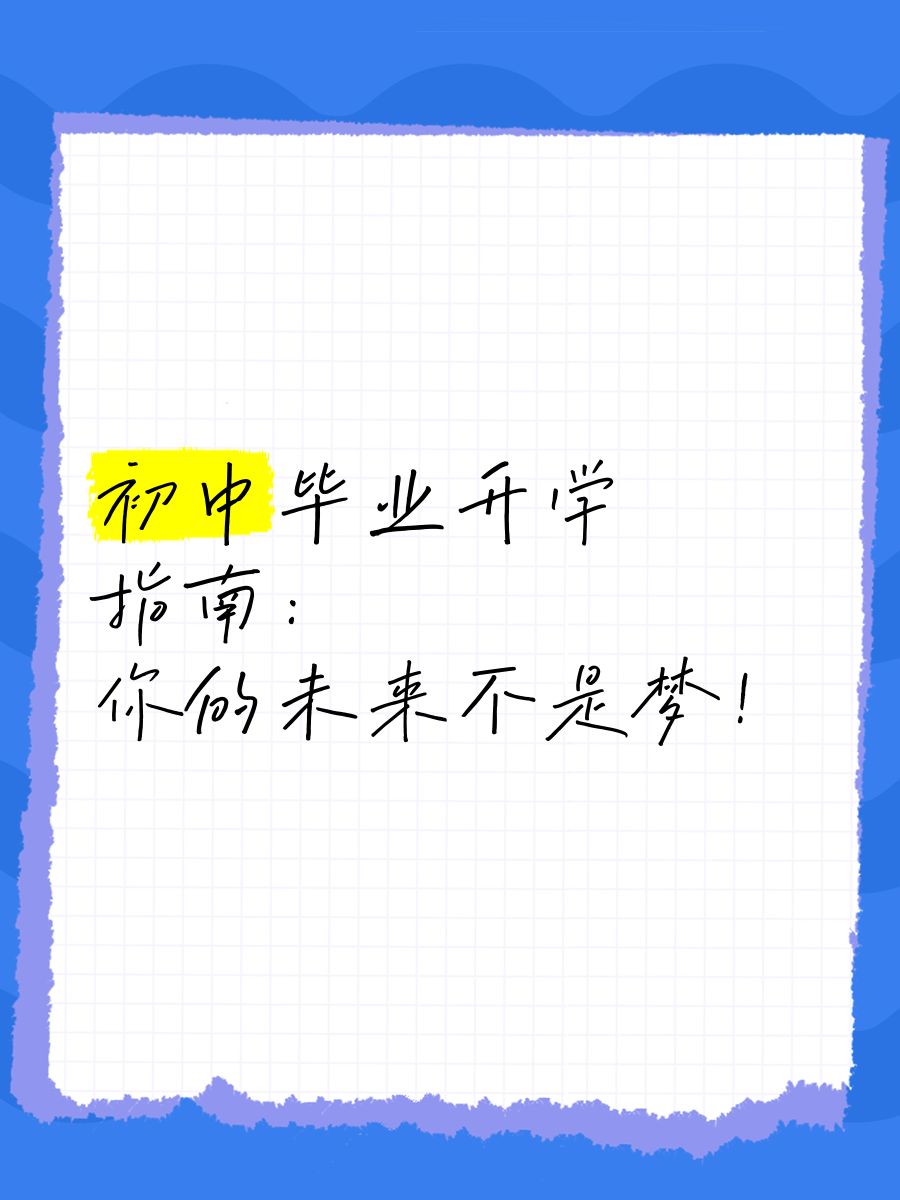 初中毕业开学
指南：
你的未来不是梦！